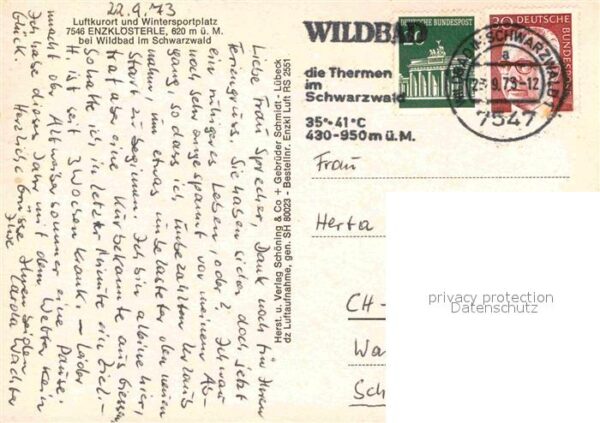 22.9.73
Luftkurort und Wintersportplatz
7546 ENZKLÖSTERLE, 620 m ü. M.
bei Wildbad im Schwarzwald
Liebe Frau Sprecher, Dank noch für Ihren
Feriengruss. Sie haben sicher doch jetzt
ein ruhigeres Leben, oder? Ich war
noch sehr angespannt vor meinem Ab-
gang so dass ich unbezahlten Urlaub
nahm, um etwas unbelasteter den neuen
Start zu beginnen. Ich bin alleine hier,
Hat aber eine Kurbekannte aus
So hatte ich, in letzter Minute ein Ziel.-
H. ist seit 3 Wochen krank. - Leider
macht der Altweibersommer eine Pause.
Ich habe dieses Jahr mit dem Wetter kein
Glück. Herzliche Grüsse Ihnen beiden
Ihre Carola Wächter
Herst. u. Verlag Schöning & Co + Gebrüder Schmidt - Lübeck
dz Luftaufnahme, gen. SH 80023 - Bestellnr. Enzkl Luft RS 2551
WILDBAD
die Thermen
im
Schwarzwald
35°-41°C
430-950m ü.M.
10 DEUTSCHE BUNDESPOST
30 DEUTSCHE BUNDESPOST
WILDBAD IM SCHWARZWALD
a
23.9.73-12
7547
Frau
Herta
CH-
Wa
Sch
privacy protection
Datenschutz